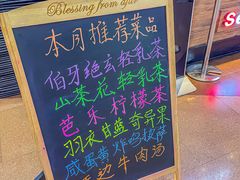 Blessing from afar
本月推荐菜品
伯牙绝玄轻乳茶
山茶花轻乳茶
芭乐柠檬茶
羽衣甘蓝奇异果
咸蛋黄炸鸡
边牛肉汤